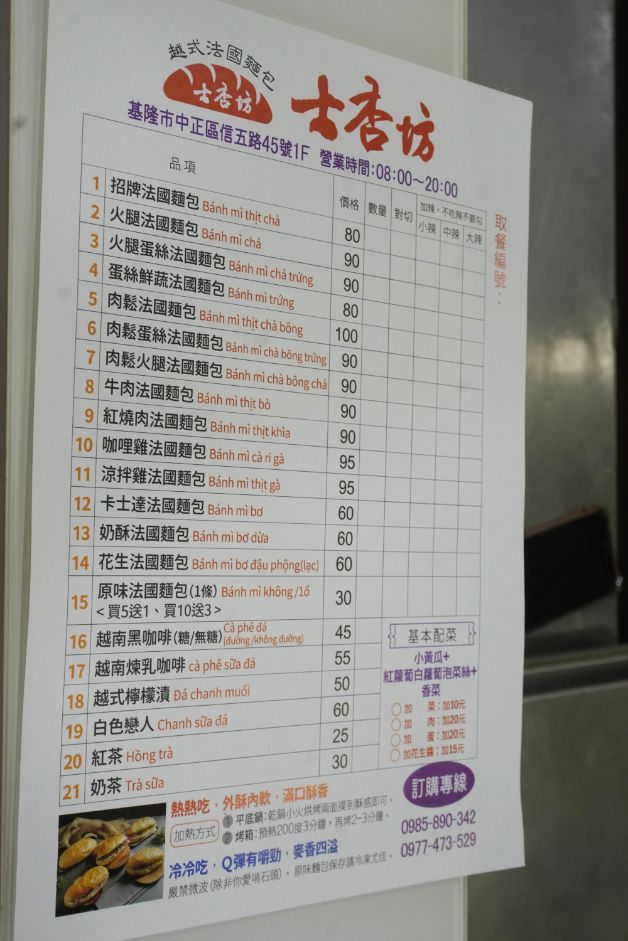 越式法國麵包
士杏坊 士杏坊
基隆市中正區信五路45號1F 營業時間:08:00~20:00
品項 價格 數量 對切 加辣,不吃辣不要勾
小辣 中辣 大辣
取餐編號:
1 招牌法國麵包 Bánh mì thịt chà 80
2 火腿法國麵包 Bánh mì chả 90
3 火腿蛋絲法國麵包 Bánh mì chả trứng 90
4 蛋絲鮮蔬法國麵包 Bánh mì trứng 80
5 肉鬆法國麵包 Bánh mì thịt chà bông 100
6 肉鬆蛋絲法國麵包 Bánh mì chà bông trứng 90
7 肉鬆火腿法國麵包 Bánh mì chà bông chả 90
8 牛肉法國麵包 Bánh mì thịt bò 90
9 紅燒肉法國麵包 Bánh mì thịt khìa 90
10 咖哩雞法國麵包 Bánh mì cà ri gà 95
11 涼拌雞法國麵包 Bánh mì thịt gà 95
12 卡士達法國麵包 Bánh mì bơ 60
13 奶酥法國麵包 Bánh mì bơ dừa 60
14 花生法國麵包 Bánh mì bơ đậu phộng(lạc) 60
15 原味法國麵包(1條) Bánh mì không /1ổ 30
<買5送1、買10送3>
16 越南黑咖啡(糖/無糖) Cà phê đá (đường /không đường) 45
17 越南煉乳咖啡 cà phê sữa đá 55
18 越式檸檬漬 Đá chanh muối 50
19 白色戀人 Chanh sữa đá 60
20 紅茶 Hồng trà 25
21 奶茶 Trà sữa 30
基本配菜
小黃瓜+
紅蘿蔔白蘿蔔泡菜絲+
香菜
○加 菜:加10元
○加 肉:加20元
○加 蛋:加20元
○加花生醬:加15元
訂購專線
0985-890-342
0977-473-529
熱熱吃,外酥內軟,滿口酥香
加熱方式 ❶ 平底鍋:乾鍋小火烘烤兩面摸到酥感即可。
❷ 烤箱:預熱200度3分鐘,再烤2-3分鐘。
冷冷吃,Q彈有嚼勁,麥香四溢
嚴禁微波(除非你愛啃石頭)。原味麵包保存請冷凍尤佳。